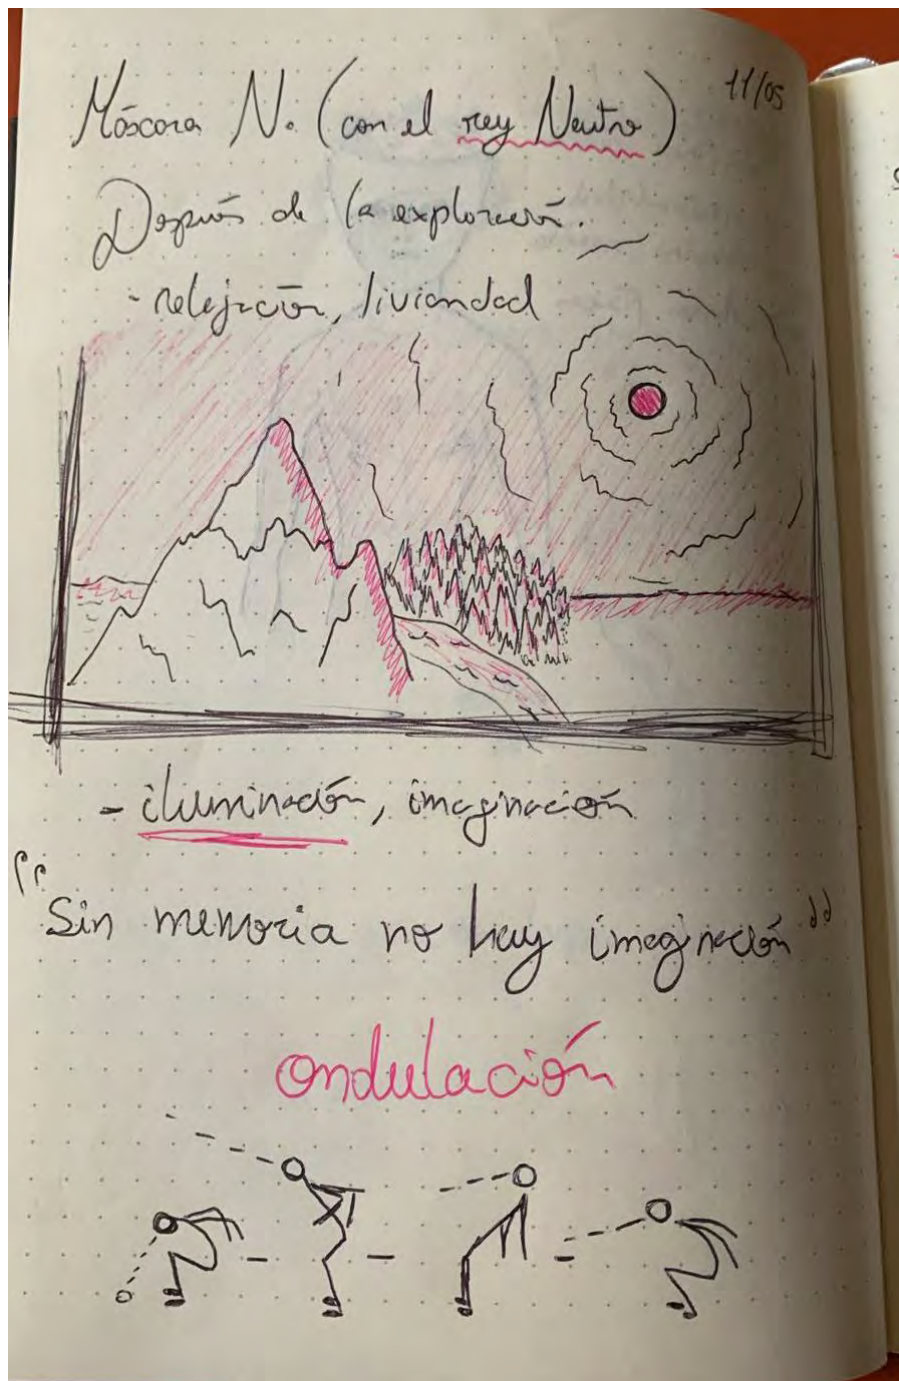 11/05
Máscara N. (con el rey Neutro)
Después de la exploración.
- relajación, liviandad
- iluminación, imaginación
"Sin memoria no hay imaginación"
ondulación